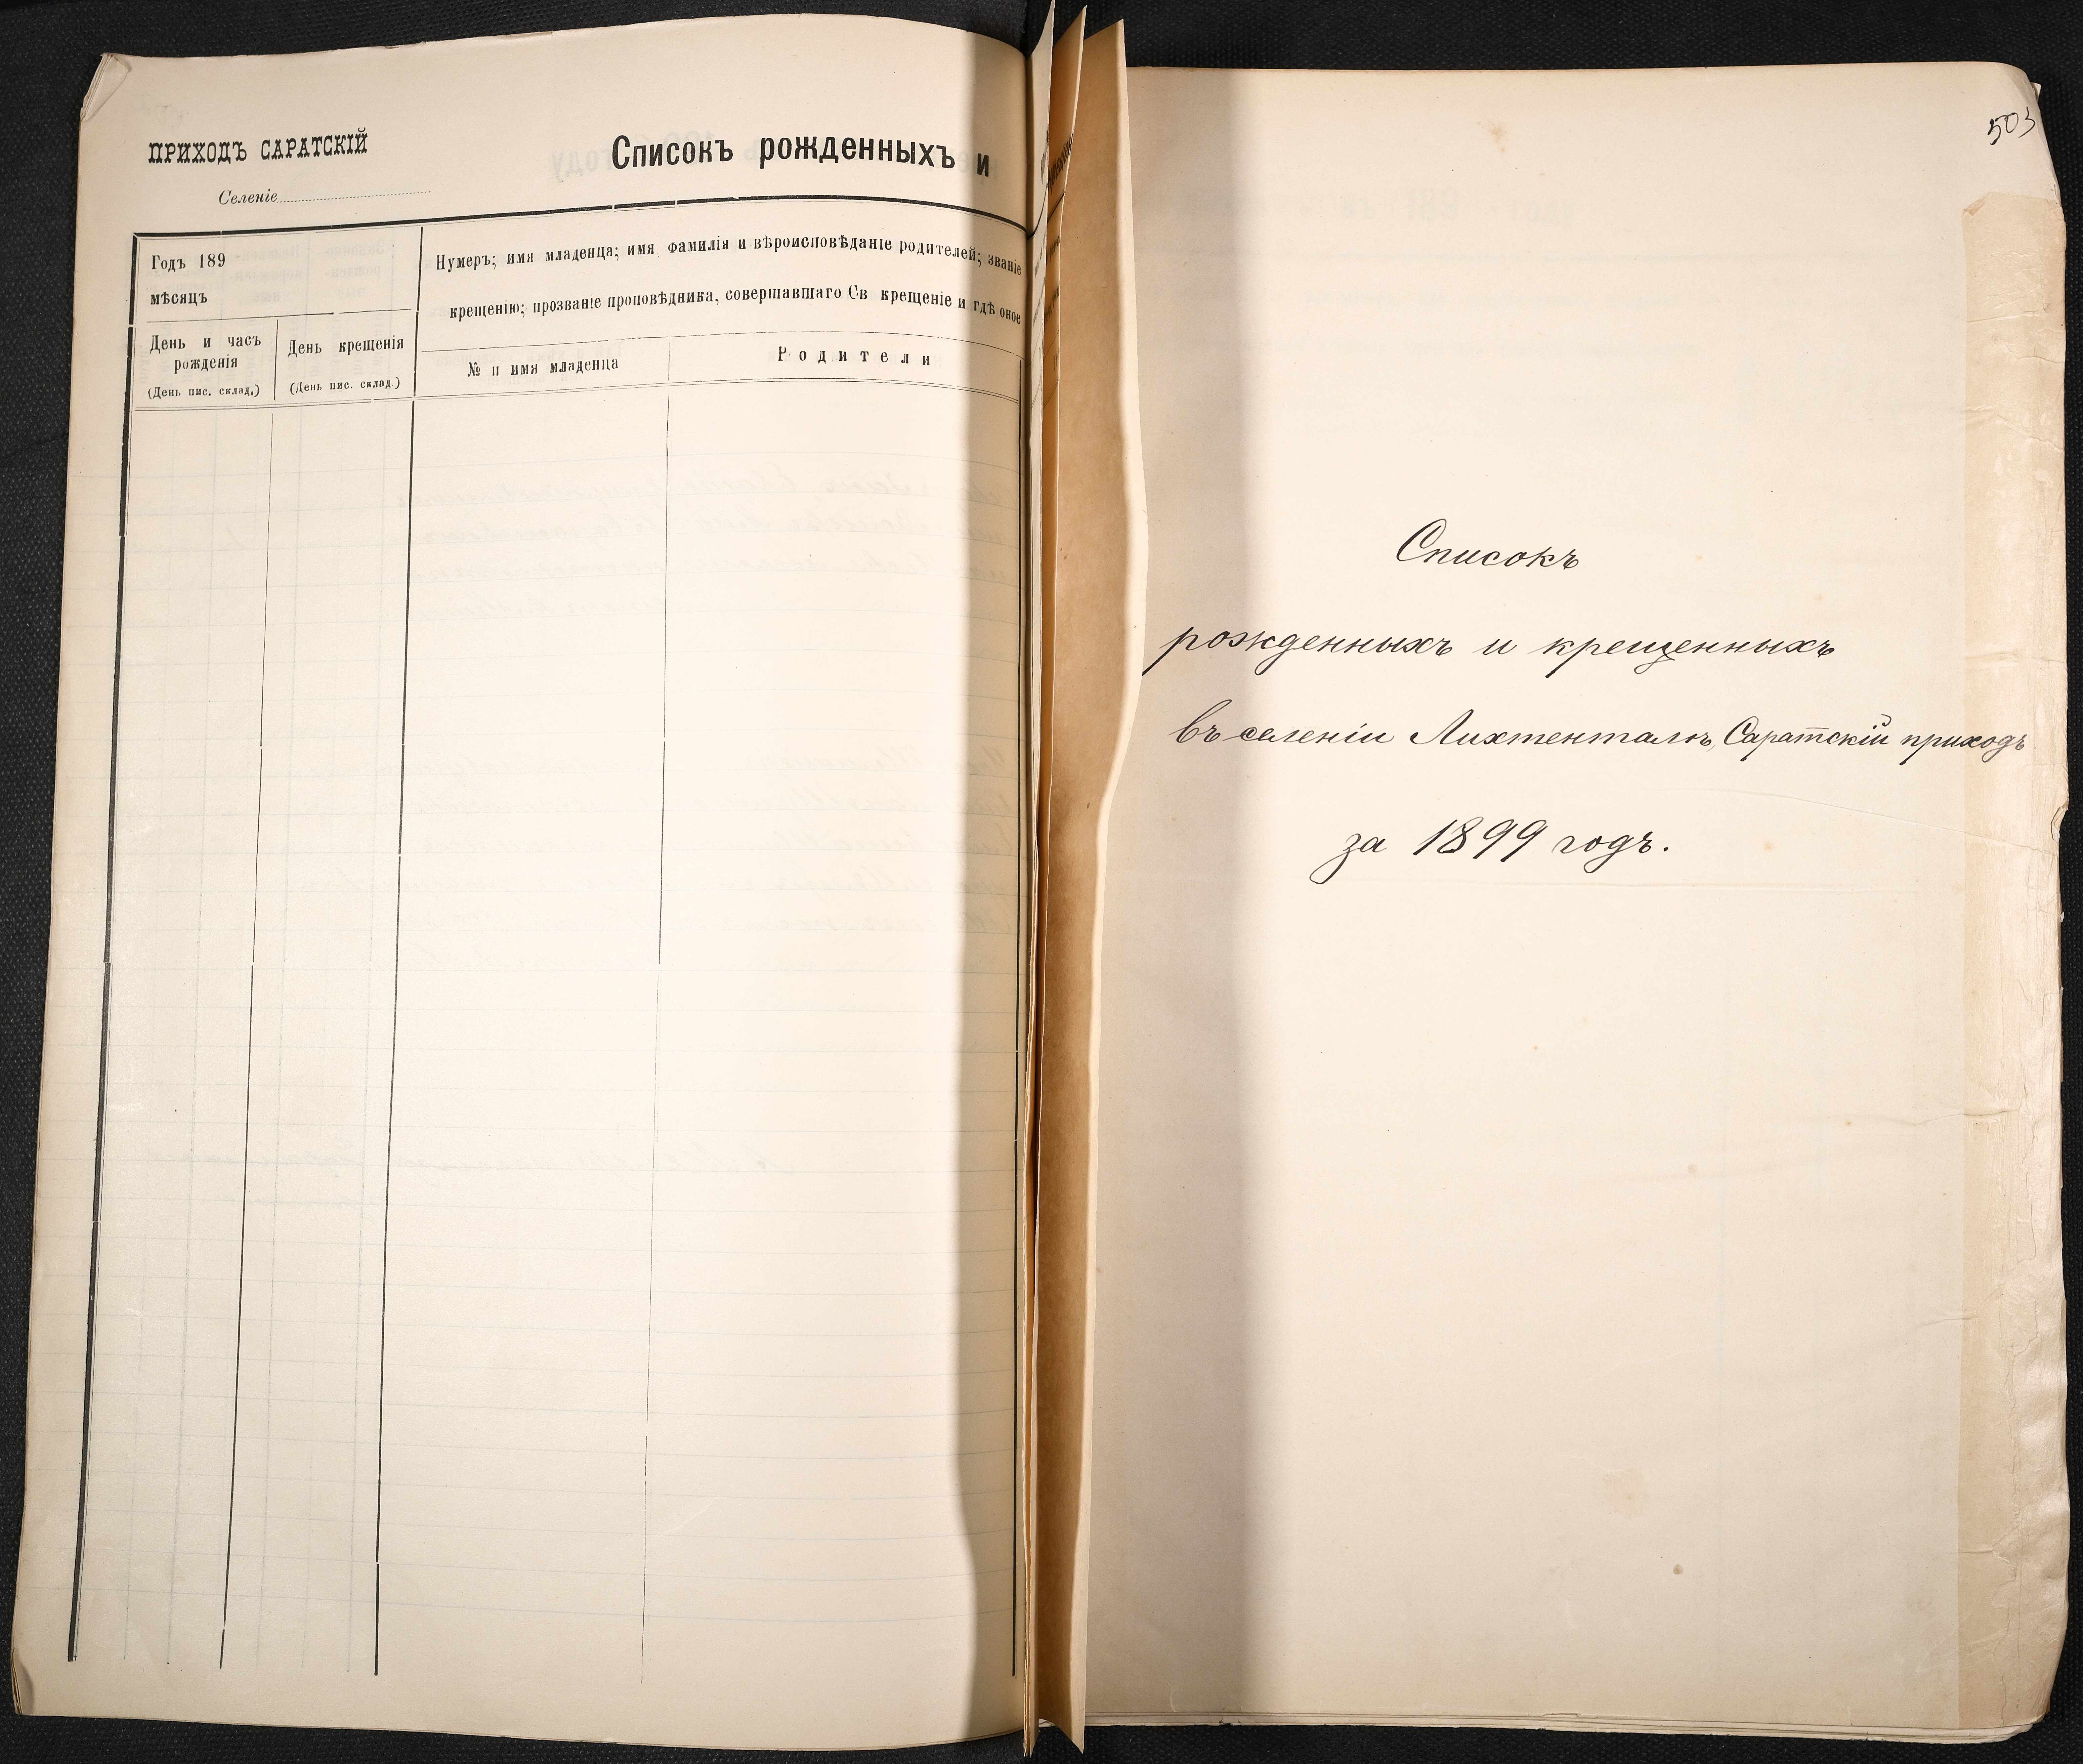 ПРИХОДЪ САРАТСКІЙ
Селеніе
Списокъ рожденныхъ и
Годъ 189
мѣсяцъ
День и часъ
рожденія
(День пис. склад.)
День крещенія
(День пис. склад.)
Нумеръ; имя младенца; имя фамилія и вѣроисповѣданіе родителей; званіе
крещенію; прозваніе проповѣдника, совершавшаго Св крещеніе и гдѣ оное
№ и имя младенца
Родители
503
Списокъ
рожденныхъ и крещенныхъ
въ селеніи Лихтенталь, Саратскій приходъ
за 1899 годъ.